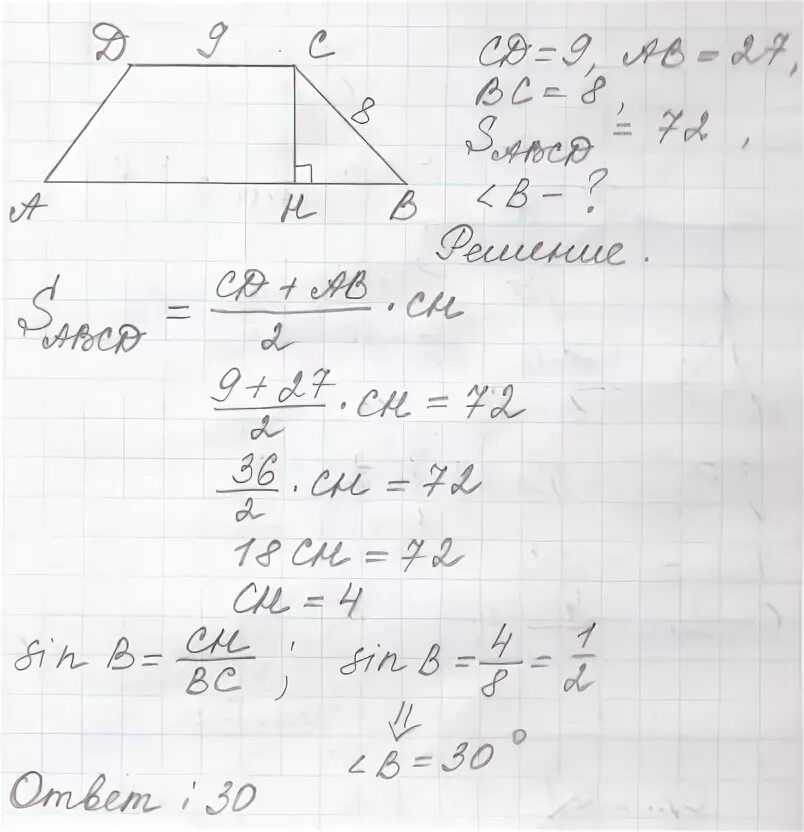 D 9 C
8
A H B
CD = 9, AB = 27,
BC = 8,
S_ABCD = 72,
∠B - ?
Решение.
S_ABCD = (CD + AB)/2 · CH
(9 + 27)/2 · CH = 72
36/2 · CH = 72
18 CH = 72
CH = 4
sin B = CH/BC ; sin B = 4/8 = 1/2
⇓
∠B = 30°
Ответ : 30